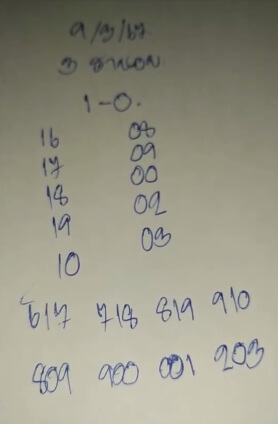 9/3/67
1-0.
16 08
17 09
18 00
19 02
10 03
617 718 819 910
809 900 001 203